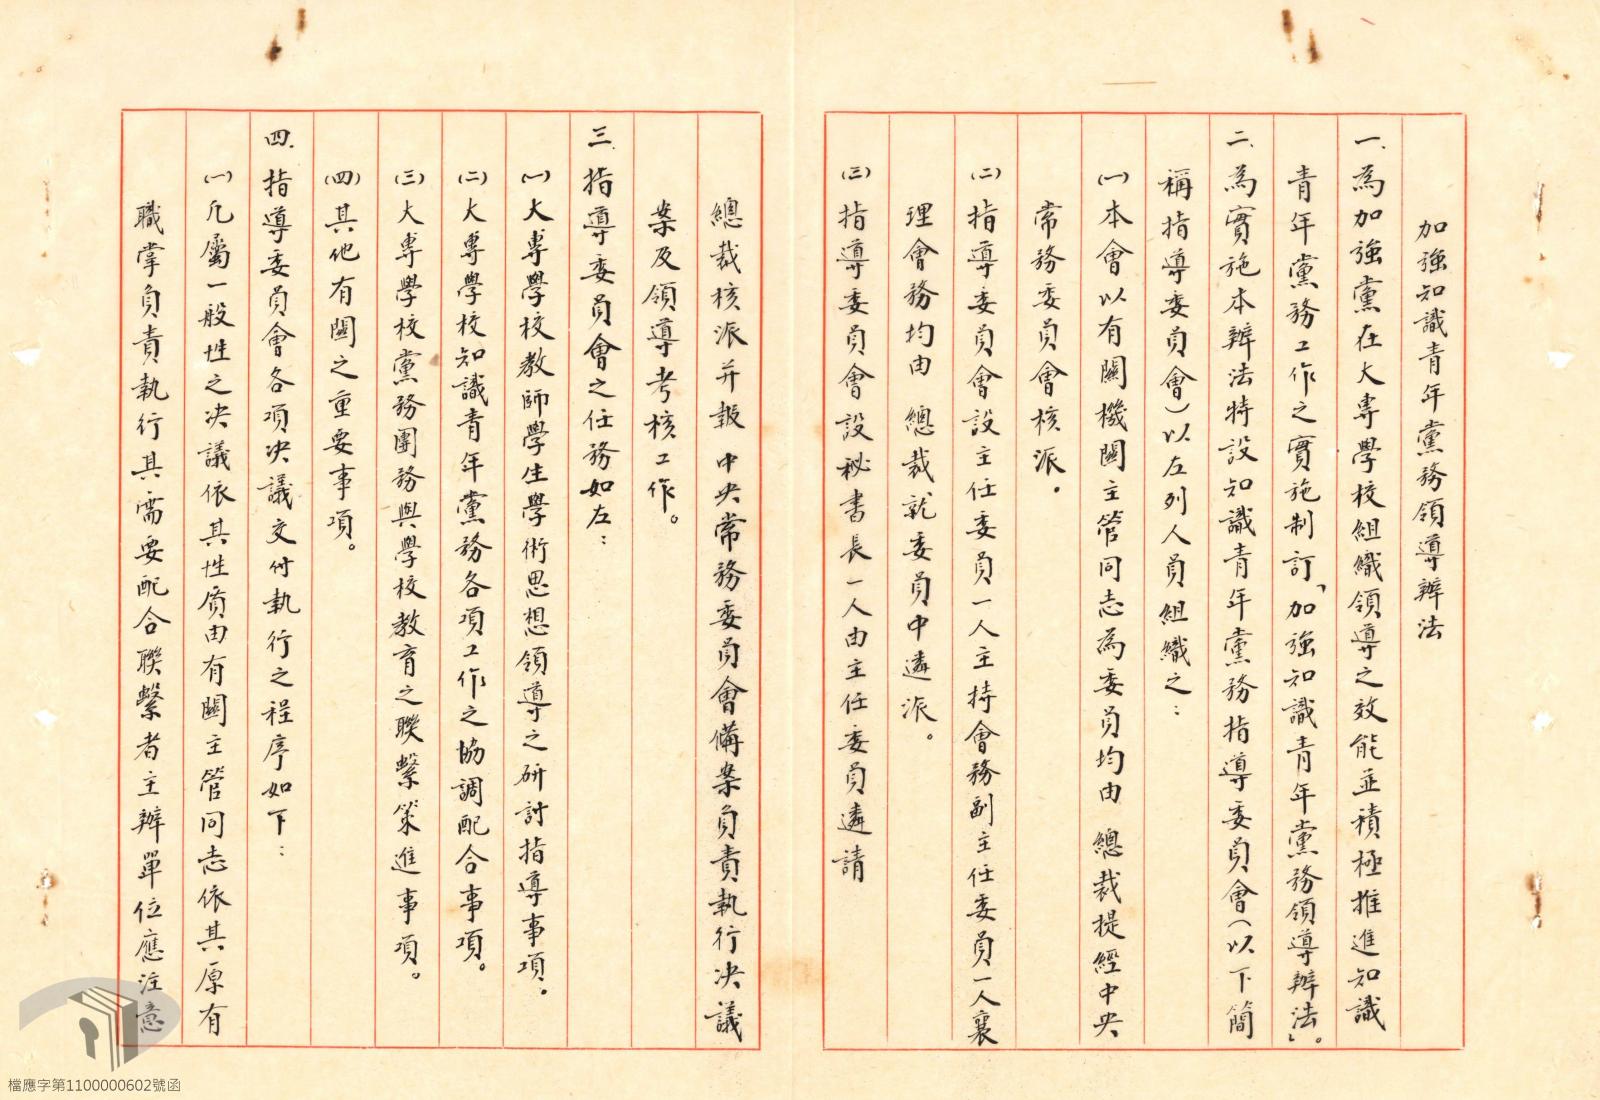 加強知識青年黨務領導辦法
一、為加強黨在大專學校組織領導之效能並積極推進知識
青年黨務工作之實施制訂「加強知識青年黨務領導辦法」。
二、為實施本辦法特設知識青年黨務指導委員會(以下簡
稱指導委員會)以左列人員組織之：
㈠本會以有關機關主管同志為委員均由 總裁提經中央
常務委員會核派。
㈡指導委員會設主任委員一人主持會務副主任委員一人襄
理會務均由 總裁就委員中遴派。
㈢指導委員會設秘書長一人由主任委員遴請
總裁核派并報中央常務委員會備案負責執行決議
案及領導考核工作。
三、指導委員會之任務如左：
㈠大專學校教師學生學術思想領導之研討指導事項。
㈡大專學校知識青年黨務各項工作之協調配合事項。
㈢大專學校黨務團務與學校教育之聯繫策進事項。
㈣其他有關之重要事項。
四、指導委員會各項決議交付執行之程序如下：
㈠凡屬一般性之決議依其性質由有關主管同志依其原有
職掌負責執行其需要配合聯繫者主辦單位應注意
檔應字第1100000602號函